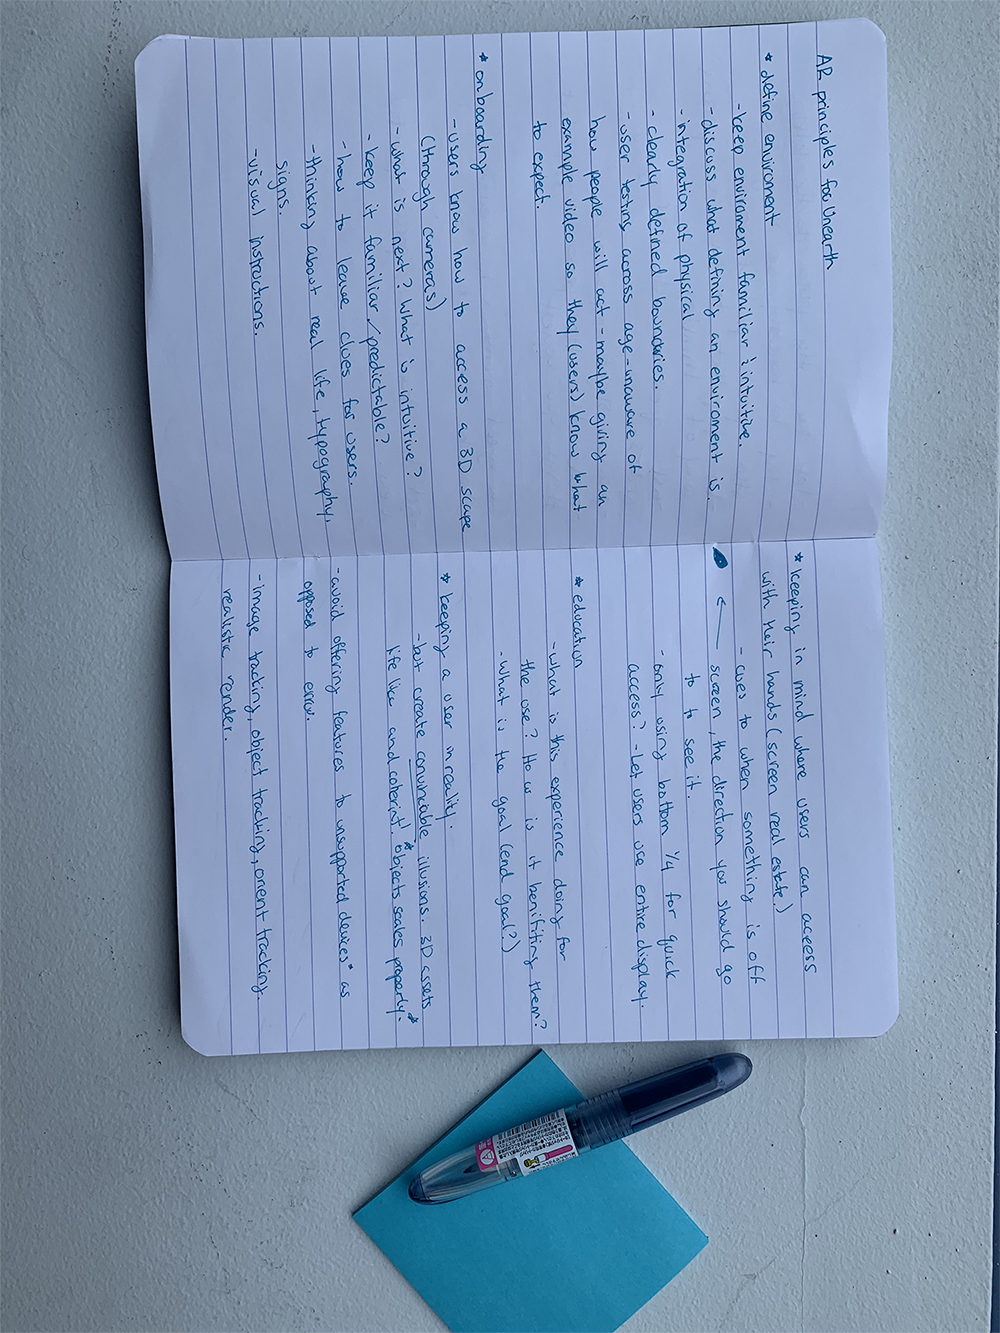 AR principles for Unearth
* define enviroment
- keep enviroment familiar & intuitive.
- discuss what defining an enviroment is.
- integration of physical
- clearly defined boundaries.
- user testing across age - unaware of
how people will act - maybe giving an
example video so they (users) know what
to expect.
* onboarding
- users know how to access a 3D scape
(through cameras)
- what is next? What is intuitive?
- keep it familiar/predictable?
- how to leave clues for users.
- thinking about real life, typography,
signs.
- visual instructions.
* keeping in mind where users can access
with their hands (screen real estate.)
- cues to when something is off
screen, the direction you should go
to to see it.
- only using bottom 1/4 for quick
access? - Let users use entire display.
* education
- what is this experience doing for
the use? How is it benifiting them?
- What is the goal (end goal?)
* keeping a user in reality.
- but create illusions. 3D assets
life like and *objects scales properly.*
- avoid offering features to unsupported devices* as
opposed to error.
- image tracking, object tracking, orient tracking.
realistic render.